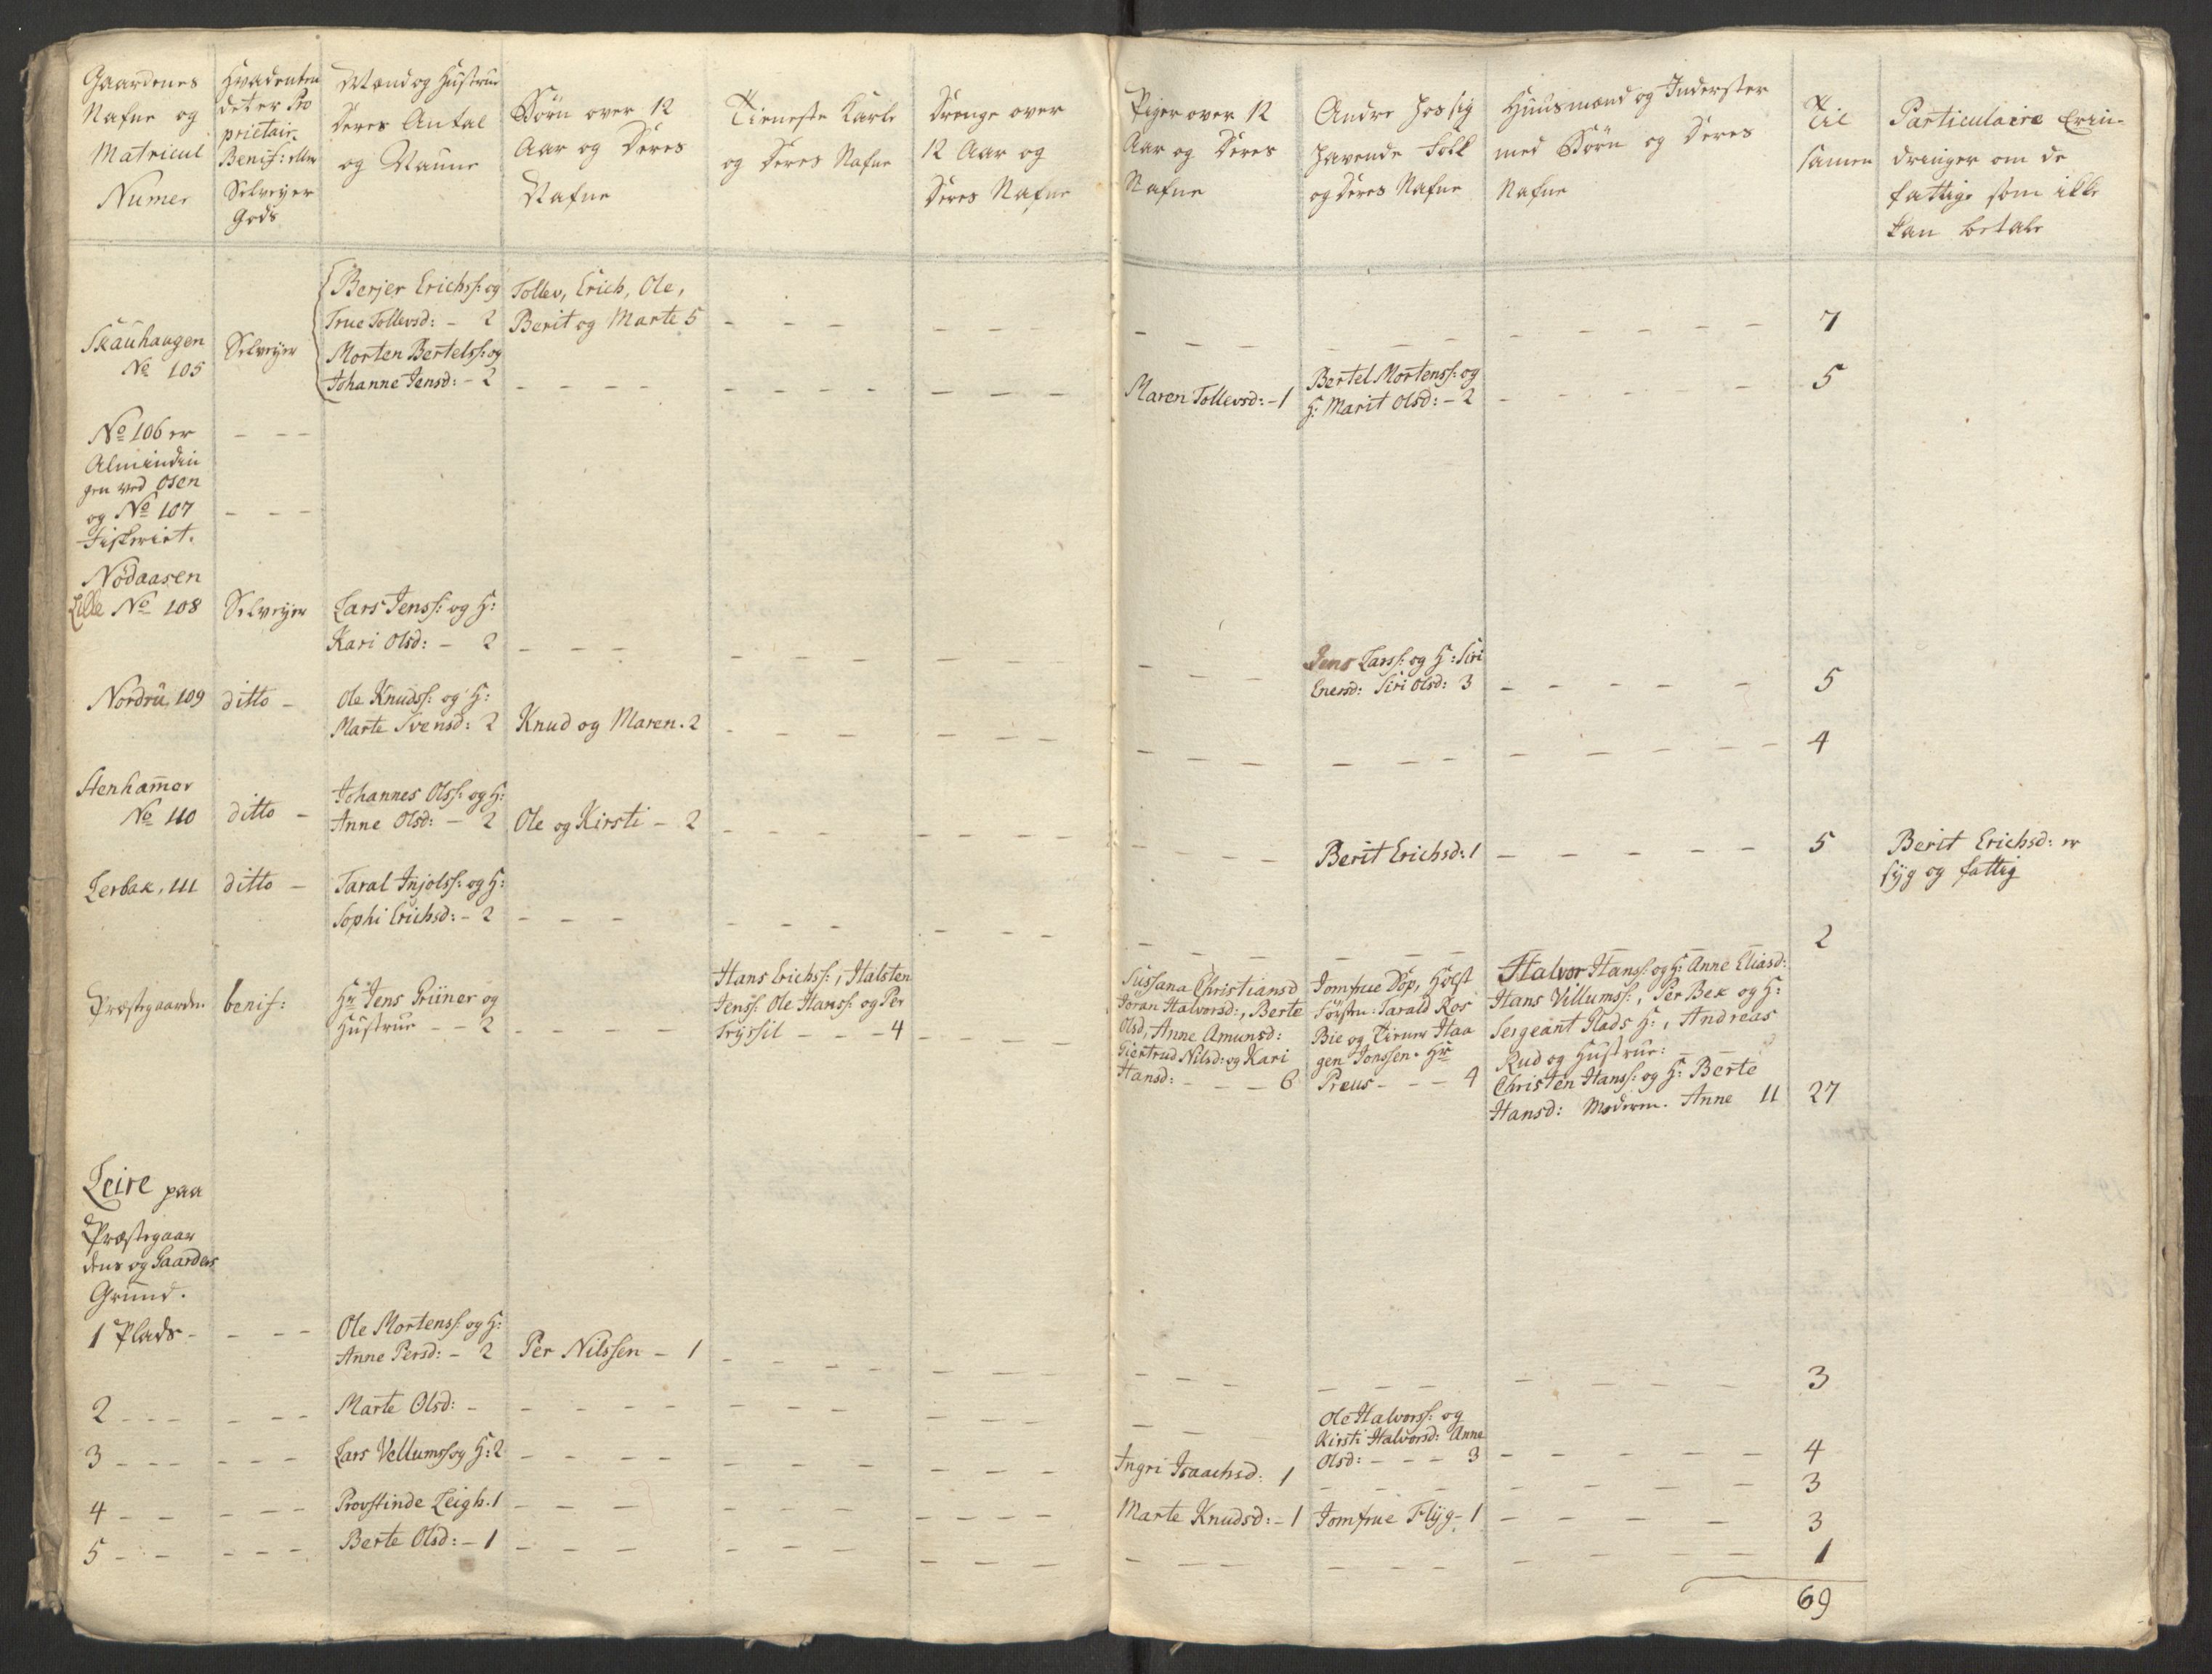 Gaardenes
Nafne og
Matricul
Numer
Hvadenten
det er Pro
prietair,
Benif: eller
Selveyer
Gods
Mænd og Hustrue
Deres Antal
og Naune
Børn over 12
Aar og Deres
Nafne
Tieneste Karle
og Deres Nafne
Drenge over
12 Aar og
Deres Nafne
Piger over 12
Aar og Deres
Nafne
Andre hos sig
havende Folk
og Deres Nafne
Huusmænd og Inderster
med Børn og Deres
Nafne
Til
samen
Particulaire Erin-
dringer om de
fattige som ikke
kan betale
Skauhaugen
No 105
Selveyer
Berjer Erichss: og
True Tollevsd: - 2
Tollev, Erich, Ole,
Berit og Marte 5
- - -
7
Morten Bertelss: og
Johanne Jensd: - 2
Maren Tollevsd: - 1
Bertel Mortenss: og
H: Marit Olsd: - 2
5
No 106 er
Almindin
gen ved Osen
og No 107
Fiskeriet.
Nødaasen
Lille No 108
Selveyer
Lars Jenss: og H:
Kari Olsd: - 2
Jens Larss: og H: Siri
Enersd: Siri Olsd: 3
5
Nordru, 109
ditto -
Ole Knudss: og H:
Marte Svensd: 2
Knud og Maren. 2
4
Stenhamer
No 110
ditto -
Johannes Olss: og H:
Anne Olsd: - 2
Ole og Kirsti - 2
Berit Erichsd: 1
5
Berit Erichsd: er
syg og fattig
Lerbak, 111
ditto -
Taral Injolss: og H:
Sophi Erichsd: - 2
2
Præstegaarden
benif:
Hr Jens Grüner og
Hustrue - - 2
Hans Erichss:, Halsten
Jenss: Ole Hanss: og Per
Tryssil - - - 4
Sussana Christiansd
Jøran Halvorsd:, Berte
Olsd, Anne Amunsd:
Giertrud Nilsd: og Kari
Hansd: - - - 6
Jomfrue Dop, Holst
Tarald Ros
Bie og Tiener Haa
gen Jonssen. Hr
Preus - - - 4
Halvor Hanss: og H: Anne Eliasd:
Hans Villumss:, Per Bek og H:
Sergeant Rads H:, Andreas
Rud og Hustrue:
Christen Hanss: og H: Berte
Hansd: Moderen. Anne 11
27
Leire paa
Præstegaar
dens og Gaardens
Grund.
1 Plads -
Ole Mortenss: og H:
Anne Persd: - 2
Per Nilssen - 1
3
2 - - -
Marte Olsd: -
Ole Halvorss: og
Kirsti Halvorsd: Anne
Olsd: - - - 3
4
3 - - -
Lars Vellumss og H: 2
Ingri Isaachsd: 1
3
4 - -
Provstinde Leigh. 1
Marte Knudsd: - 1
Jomfrue Flyg - 1
3
5 - -
Berte Olsd: - 1
1
69